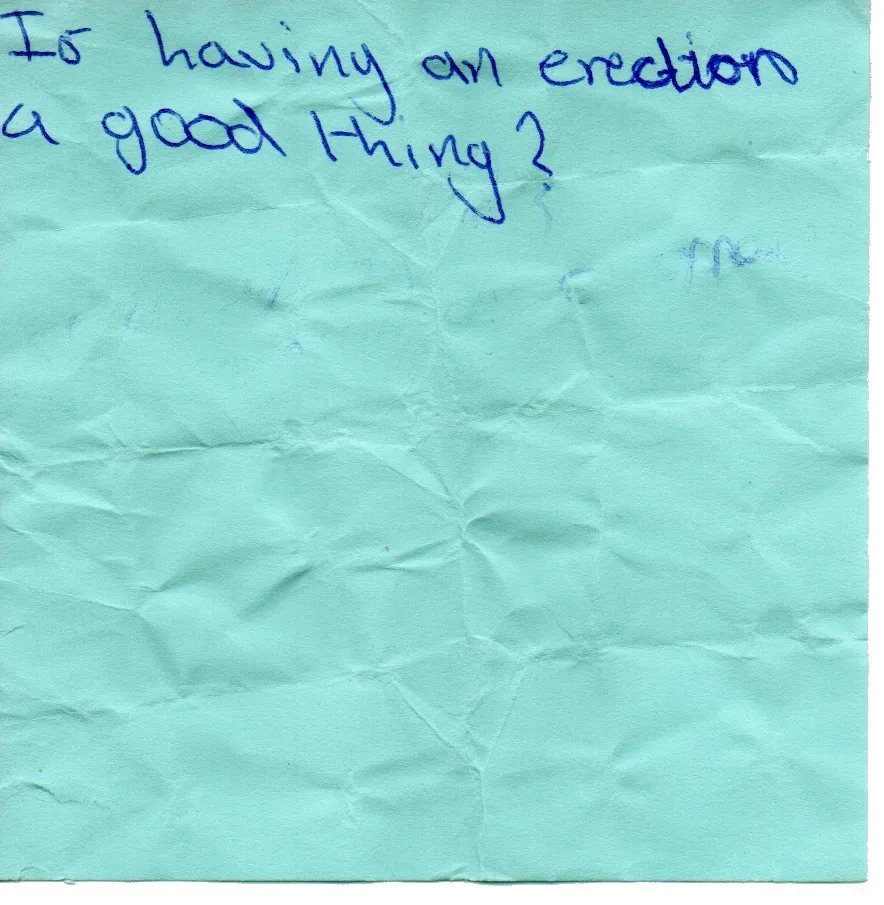 Is having an erection
a good thing?